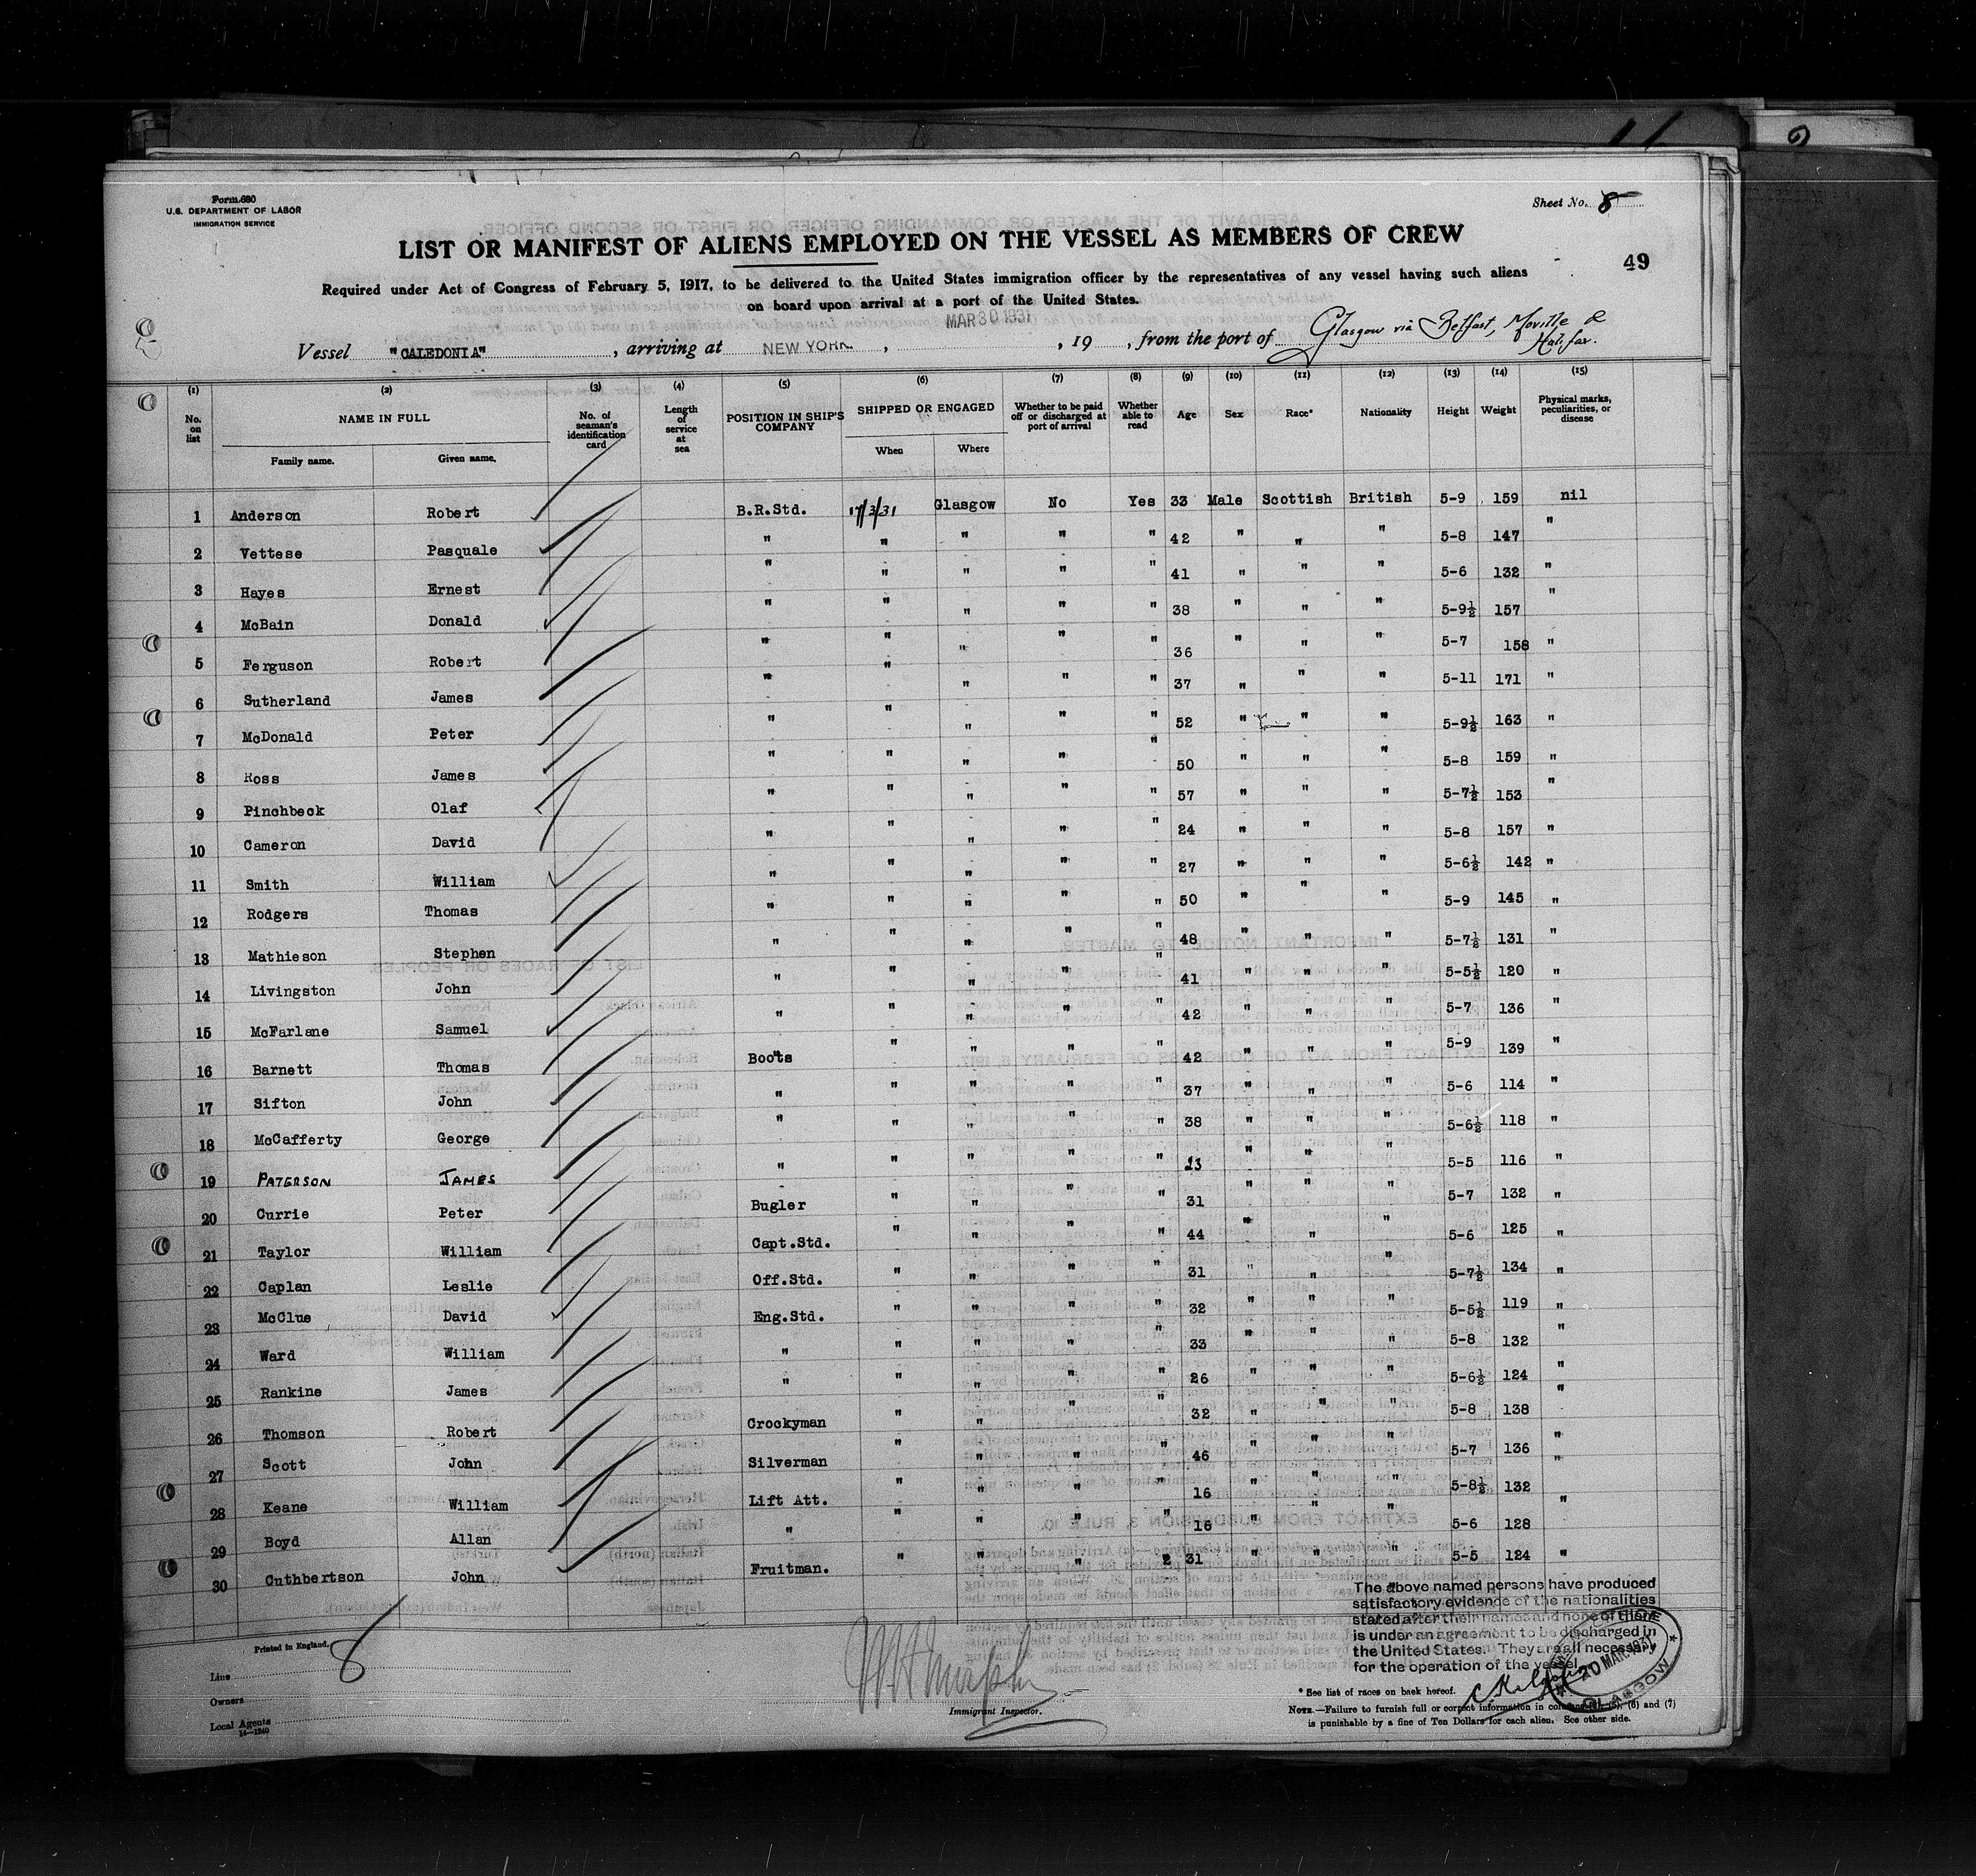 Form 680
U.S. DEPARTMENT OF LABOR
IMMIGRATION SERVICE
Sheet No. 8
LIST OR MANIFEST OF ALIENS EMPLOYED ON THE VESSEL AS MEMBERS OF CREW
49
Required under Act of Congress of February 5, 1917, to be delivered to the United States immigration officer by the representatives of any vessel having such aliens
on board upon arrival at a port of the United States.
MAR 30 1931
Vessel "CALEDONIA", arriving at NEW YORK, , 19 , from the port of Glasgow via Belfast, Moville &
Halifax.
(1) (2) (3) (4) (5) (6) (7) (8) (9) (10) (11) (12) (13) (14) (15)
No. on list NAME IN FULL No. of seaman's identification card Length of service at sea POSITION IN SHIP'S COMPANY SHIPPED OR ENGAGED Whether to be paid off or discharged at port of arrival Whether able to read Age Sex Race* Nationality Height Weight Physical marks, peculiarities, or disease
Family name. Given name. When Where
1 Anderson Robert B.R.Std. 17/3/31 Glasgow No Yes 33 Male Scottish British 5-9 159 nil
2 Vettese Pasquale " " " " " 42 " " " 5-8 147 "
3 Hayes Ernest " " " " " 41 " " " 5-6 132 "
4 McBain Donald " " " " " 38 " " " 5-9½ 157 "
5 Ferguson Robert " " " " " 36 " " " 5-7 158 "
6 Sutherland James " " " " " 37 " " " 5-11 171 "
7 McDonald Peter " " " " " 52 " " " 5-9½ 163 "
8 Ross James " " " " " 50 " " " 5-8 159 "
9 Pinchbeck Olaf " " " " " 57 " " " 5-7½ 153 "
10 Cameron David " " " " " 24 " " " 5-8 157 "
11 Smith William " " " " " 27 " " " 5-6½ 142 "
12 Rodgers Thomas " " " " " 50 " " " 5-9 145 "
13 Mathieson Stephen " " " " " 48 " " " 5-7½ 131 "
14 Livingston John " " " " " 41 " " " 5-5½ 120 "
15 McFarlane Samuel " " " " " 42 " " " 5-7 136 "
16 Barnett Thomas Boots " " " " 42 " " " 5-9 139 "
17 Sifton John " " " " " 37 " " " 5-6 114 "
18 McCafferty George " " " " " 38 " " " 5-6½ 118 "
19 PATERSON JAMES " " " " " " " " 5-5 116 "
20 Currie Peter Bugler " " " " 31 " " " 5-7 132 "
21 Taylor William Capt.Std. " " " " 44 " " " 5-6 125 "
22 Caplan Leslie Off.Std. " " " " 31 " " " 5-7½ 134 "
23 McClue David Eng.Std. " " " " 32 " " " 5-5½ 119 "
24 Ward William " " " " " 33 " " " 5-8 132 "
25 Rankine James " " " " " 26 " " " 5-6½ 124 "
26 Thomson Robert Crockyman " " " " 32 " " " 5-8 138 "
27 Scott John Silverman " " " " 46 " " " 5-7 136 "
28 Keane William Lift Att. " " " " 16 " " " 5-8½ 132 "
29 Boyd Allan " " " " " 16 " " " 5-6 128 "
30 Cuthbertson John Fruitman. " " " " 31 " " " 5-5 124 "
The above named persons have produced
satisfactory evidence of the nationalities
stated after their names and none of them
is under an agreement to be discharged in
the United States. They are all necessary
for the operation of the vessel.
20 MAR. 1931
GLASGOW
Printed in England.
Line
8
Owners
Local Agents
14—1240
Immigrant Inspector.
* See list of races on back hereof.
NOTE.—Failure to furnish full or correct information in columns (5), (6) and (7)
is punishable by a fine of Ten Dollars for each alien. See other side.